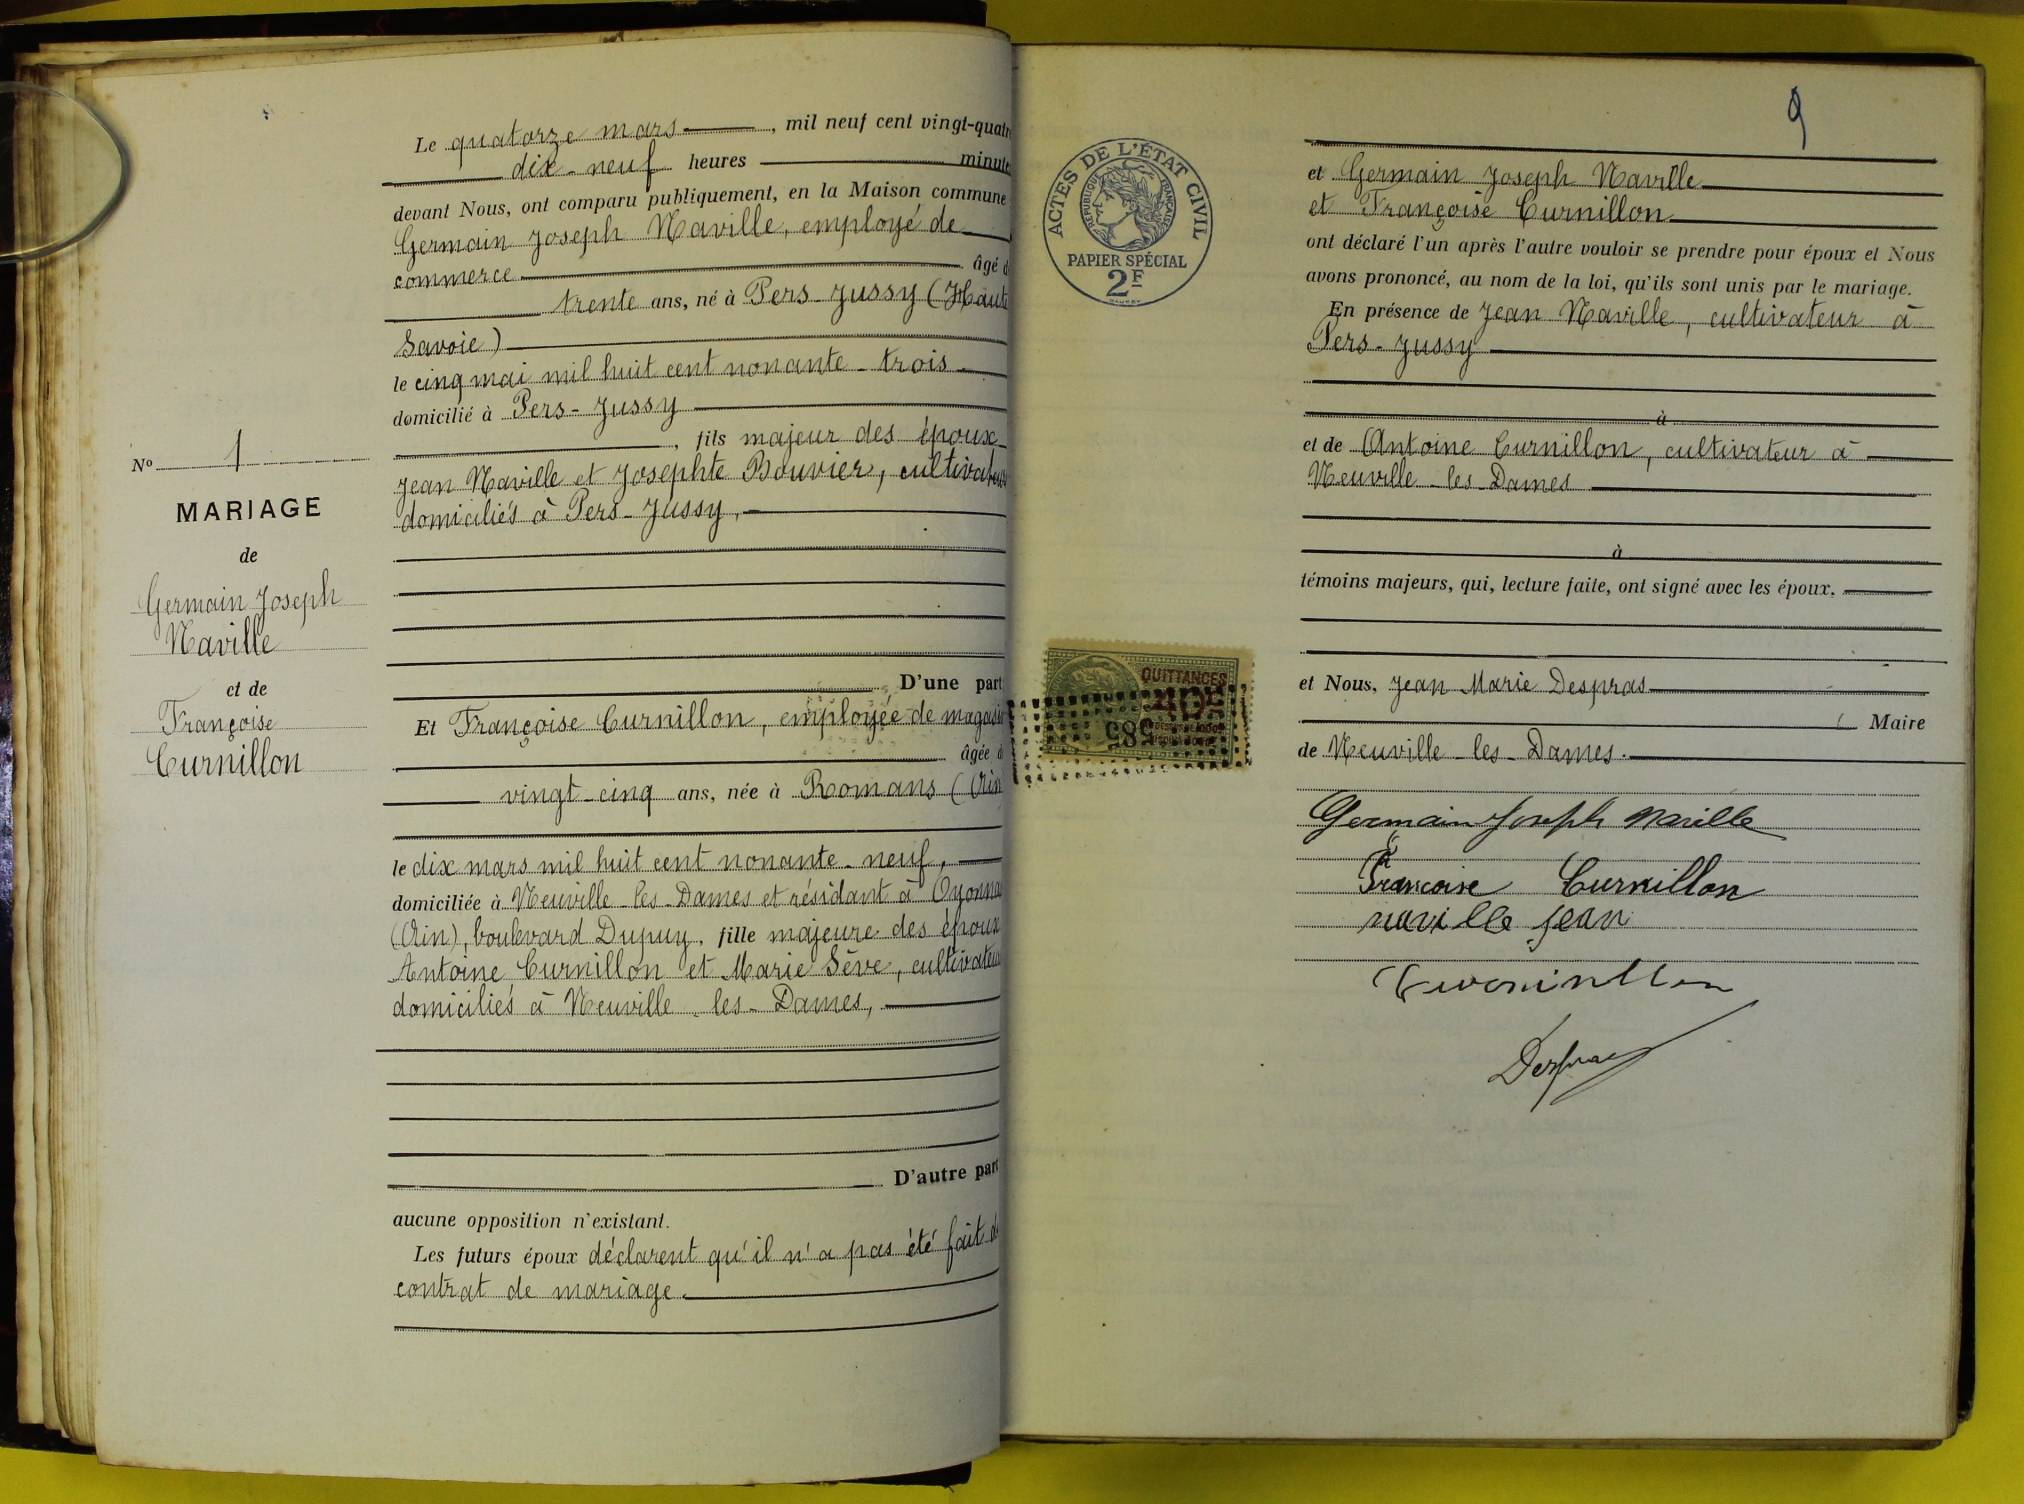 N° 1
MARIAGE
de
Germain Joseph
Naville
et de
Françoise
Curnillon
Le quatorze mars, mil neuf cent vingt-quatr
dix-neuf heures minute
devant Nous, ont comparu publiquement, en la Maison commune
Germain Joseph Naville, employé de
commerce âgé d
trente ans, né à Pers-Jussy (Haute
Savoie)
le cinq mai mil huit cent nonante-trois
domicilié à Pers-Jussy
, fils majeur des époux
Jean Naville et Josephte Bouvier, cultivateurs
domiciliés à Pers-Jussy,
D'une part
Et Françoise Curnillon, employée de magasin
âgée d
vingt-cinq ans, née à Romans (Ain
le dix mars mil huit cent nonante-neuf,
domiciliée à Neuville-les-Dames et résidant à Oyonna
(Ain), boulevard Dupuy, fille majeure des époux
Antoine Curnillon et Marie Sève, cultivateu
domiciliés à Neuville-les-Dames,
D'autre part
aucune opposition n'existant.
Les futurs époux déclarent qu'il n'a pas été fait d
contrat de mariage.
9
ACTES DE L'ÉTAT CIVIL
RÉPUBLIQUE FRANÇAISE
PAPIER SPÉCIAL
2F
et Germain Joseph Naville
et Françoise Curnillon
ont déclaré l'un après l'autre vouloir se prendre pour époux et Nous
avons prononcé, au nom de la loi, qu'ils sont unis par le mariage.
En présence de Jean Naville, cultivateur à
Pers-Jussy
à
et de Antoine Curnillon, cultivateur à
Neuville-les-Dames
à
témoins majeurs, qui, lecture faite, ont signé avec les époux,
QUITTANCES
585
et Nous, Jean Marie Despras
Maire
de Neuville-les-Dames.
Germain Joseph Naville
Françoise Curnillon
naville jean
Curninllon
Despras